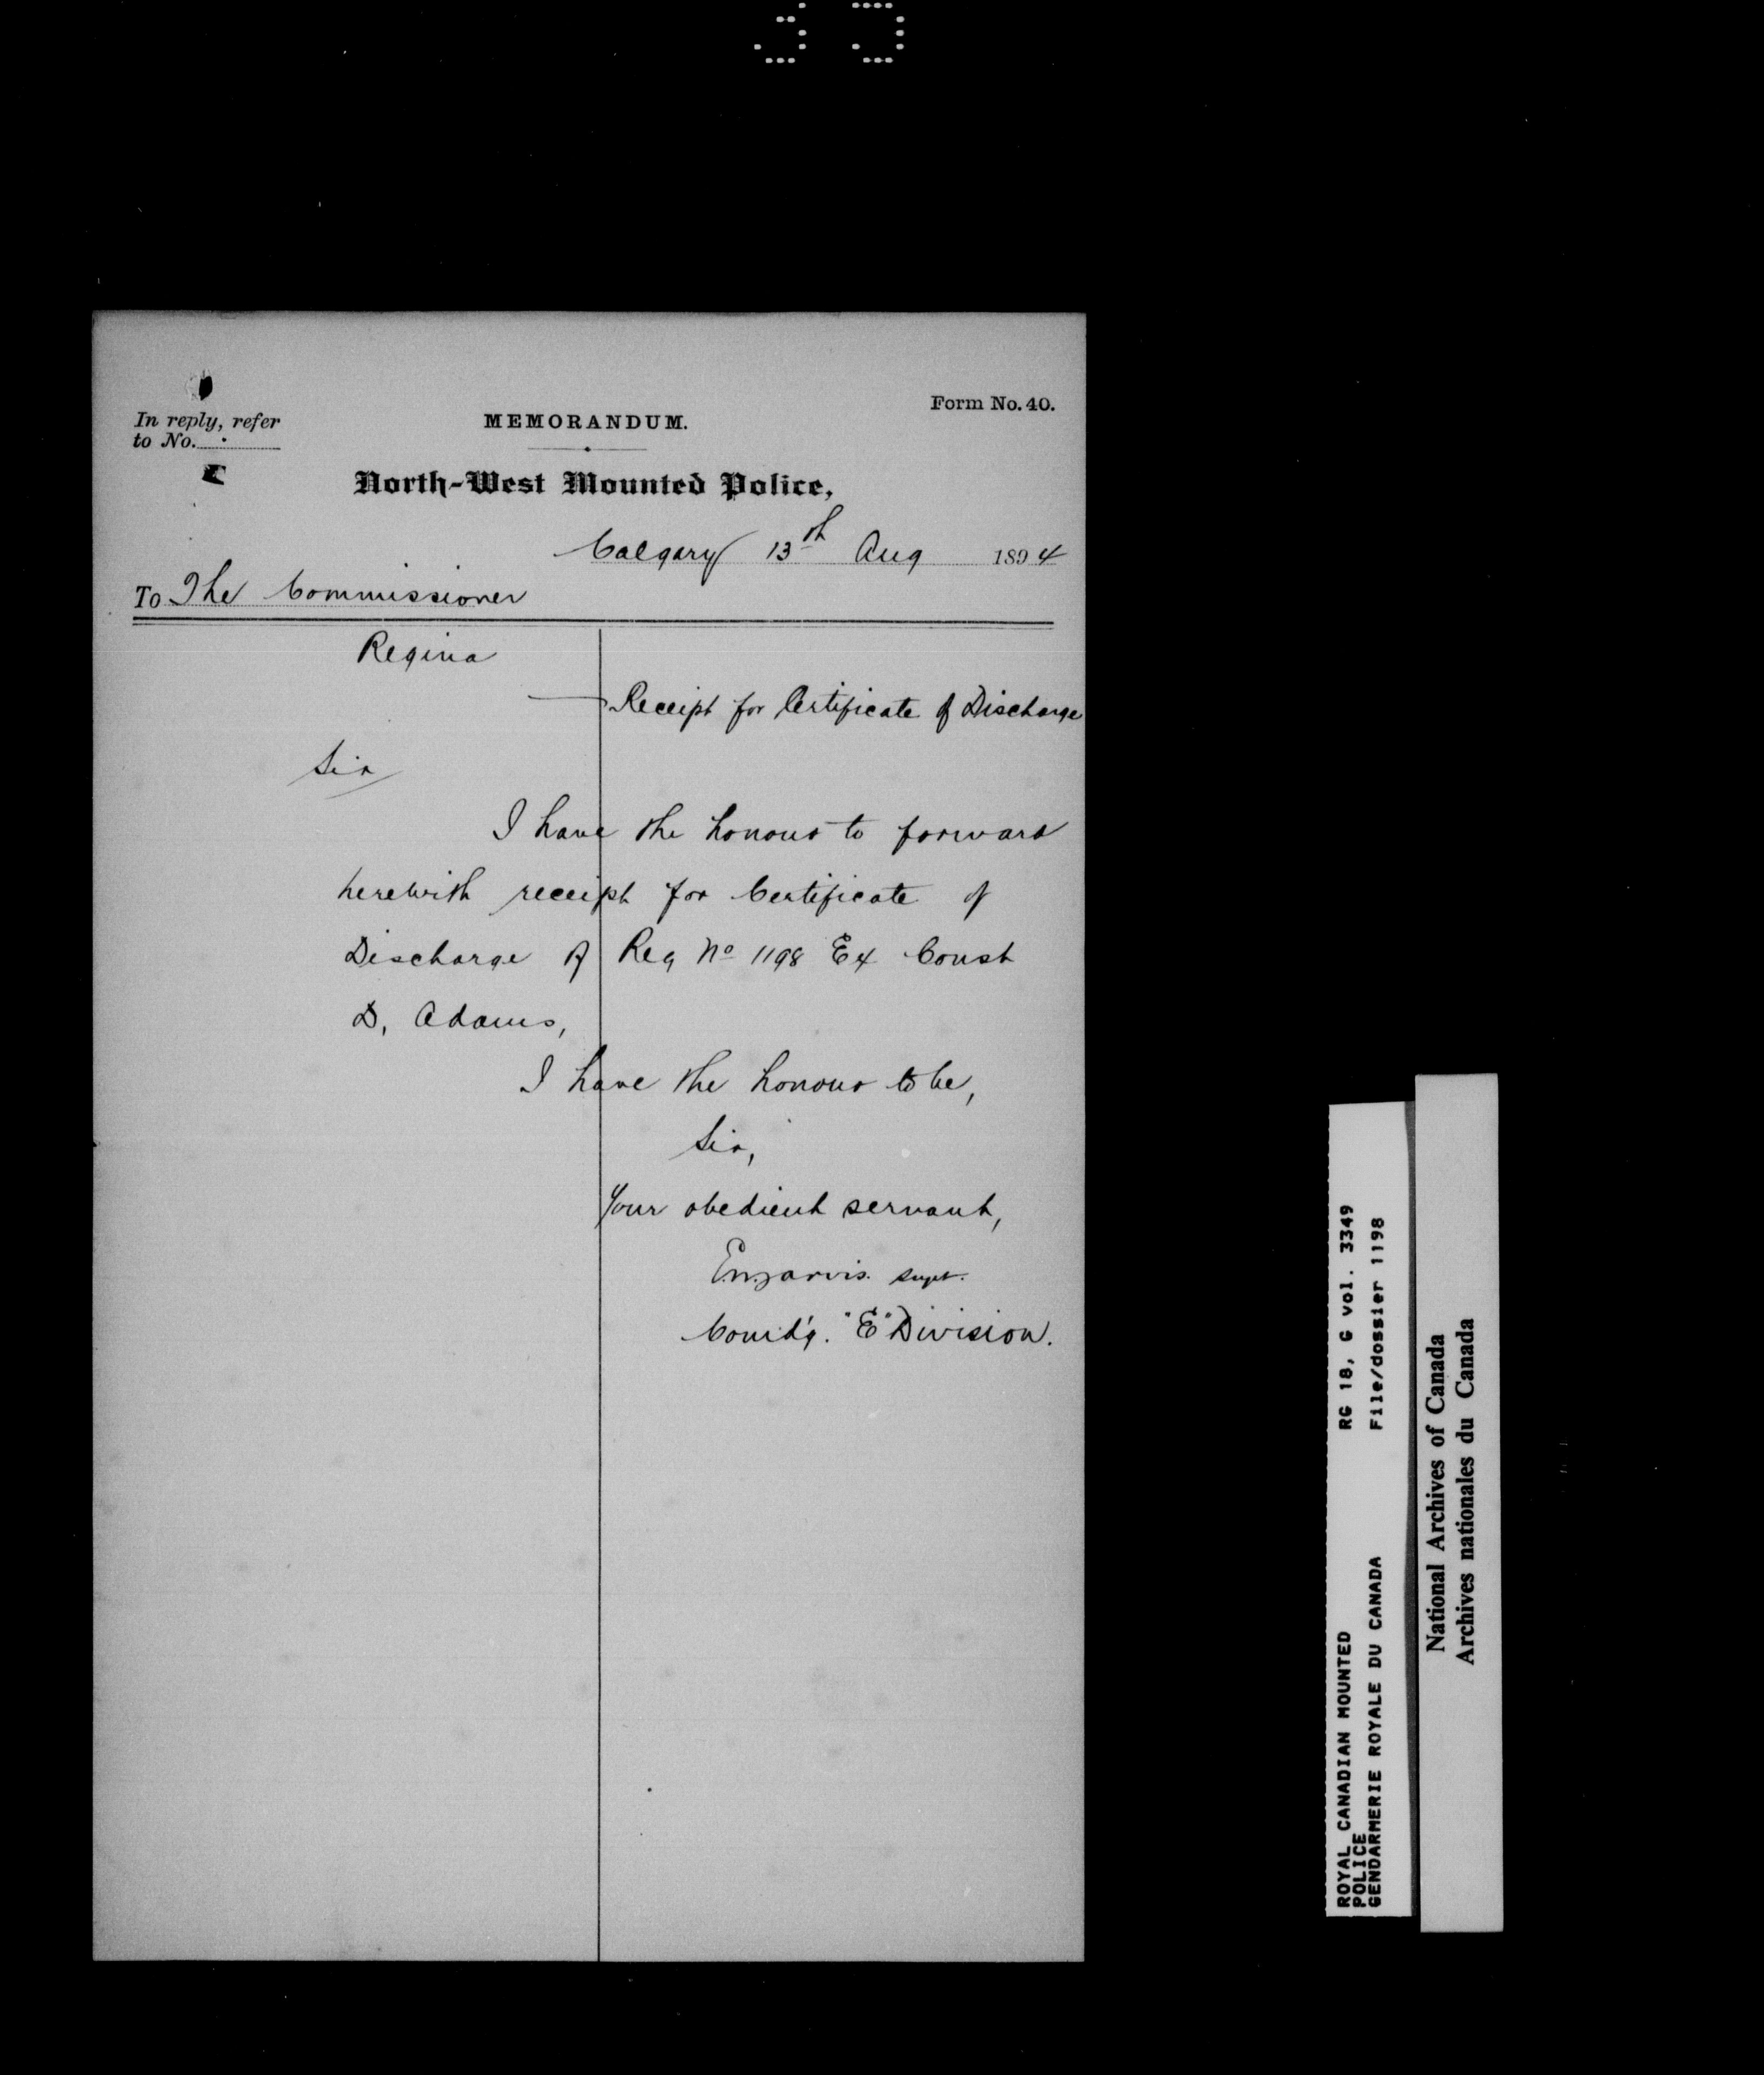 Form No. 40.
In reply, refer
to No.
MEMORANDUM.
North-West Mounted Police,
Calgary 13th Aug 1894
To The Commissioner
Regina
Receipt for Certificate of Discharge
Sir
I have the honour to forward
herewith receipt for Certificate of
Discharge of Reg No 1198 Ex Const
D, Adams,
I have the honour to be,
Sir,
Your obedient servant,
E.m.Jarvis. Supt.
Comd'g. "E" Division.
ROYAL CANADIAN MOUNTED RG 18, G vol. 3349
POLICE
GENDARMERIE ROYALE DU CANADA File/dossier 1198
National Archives of Canada
Archives nationales du Canada